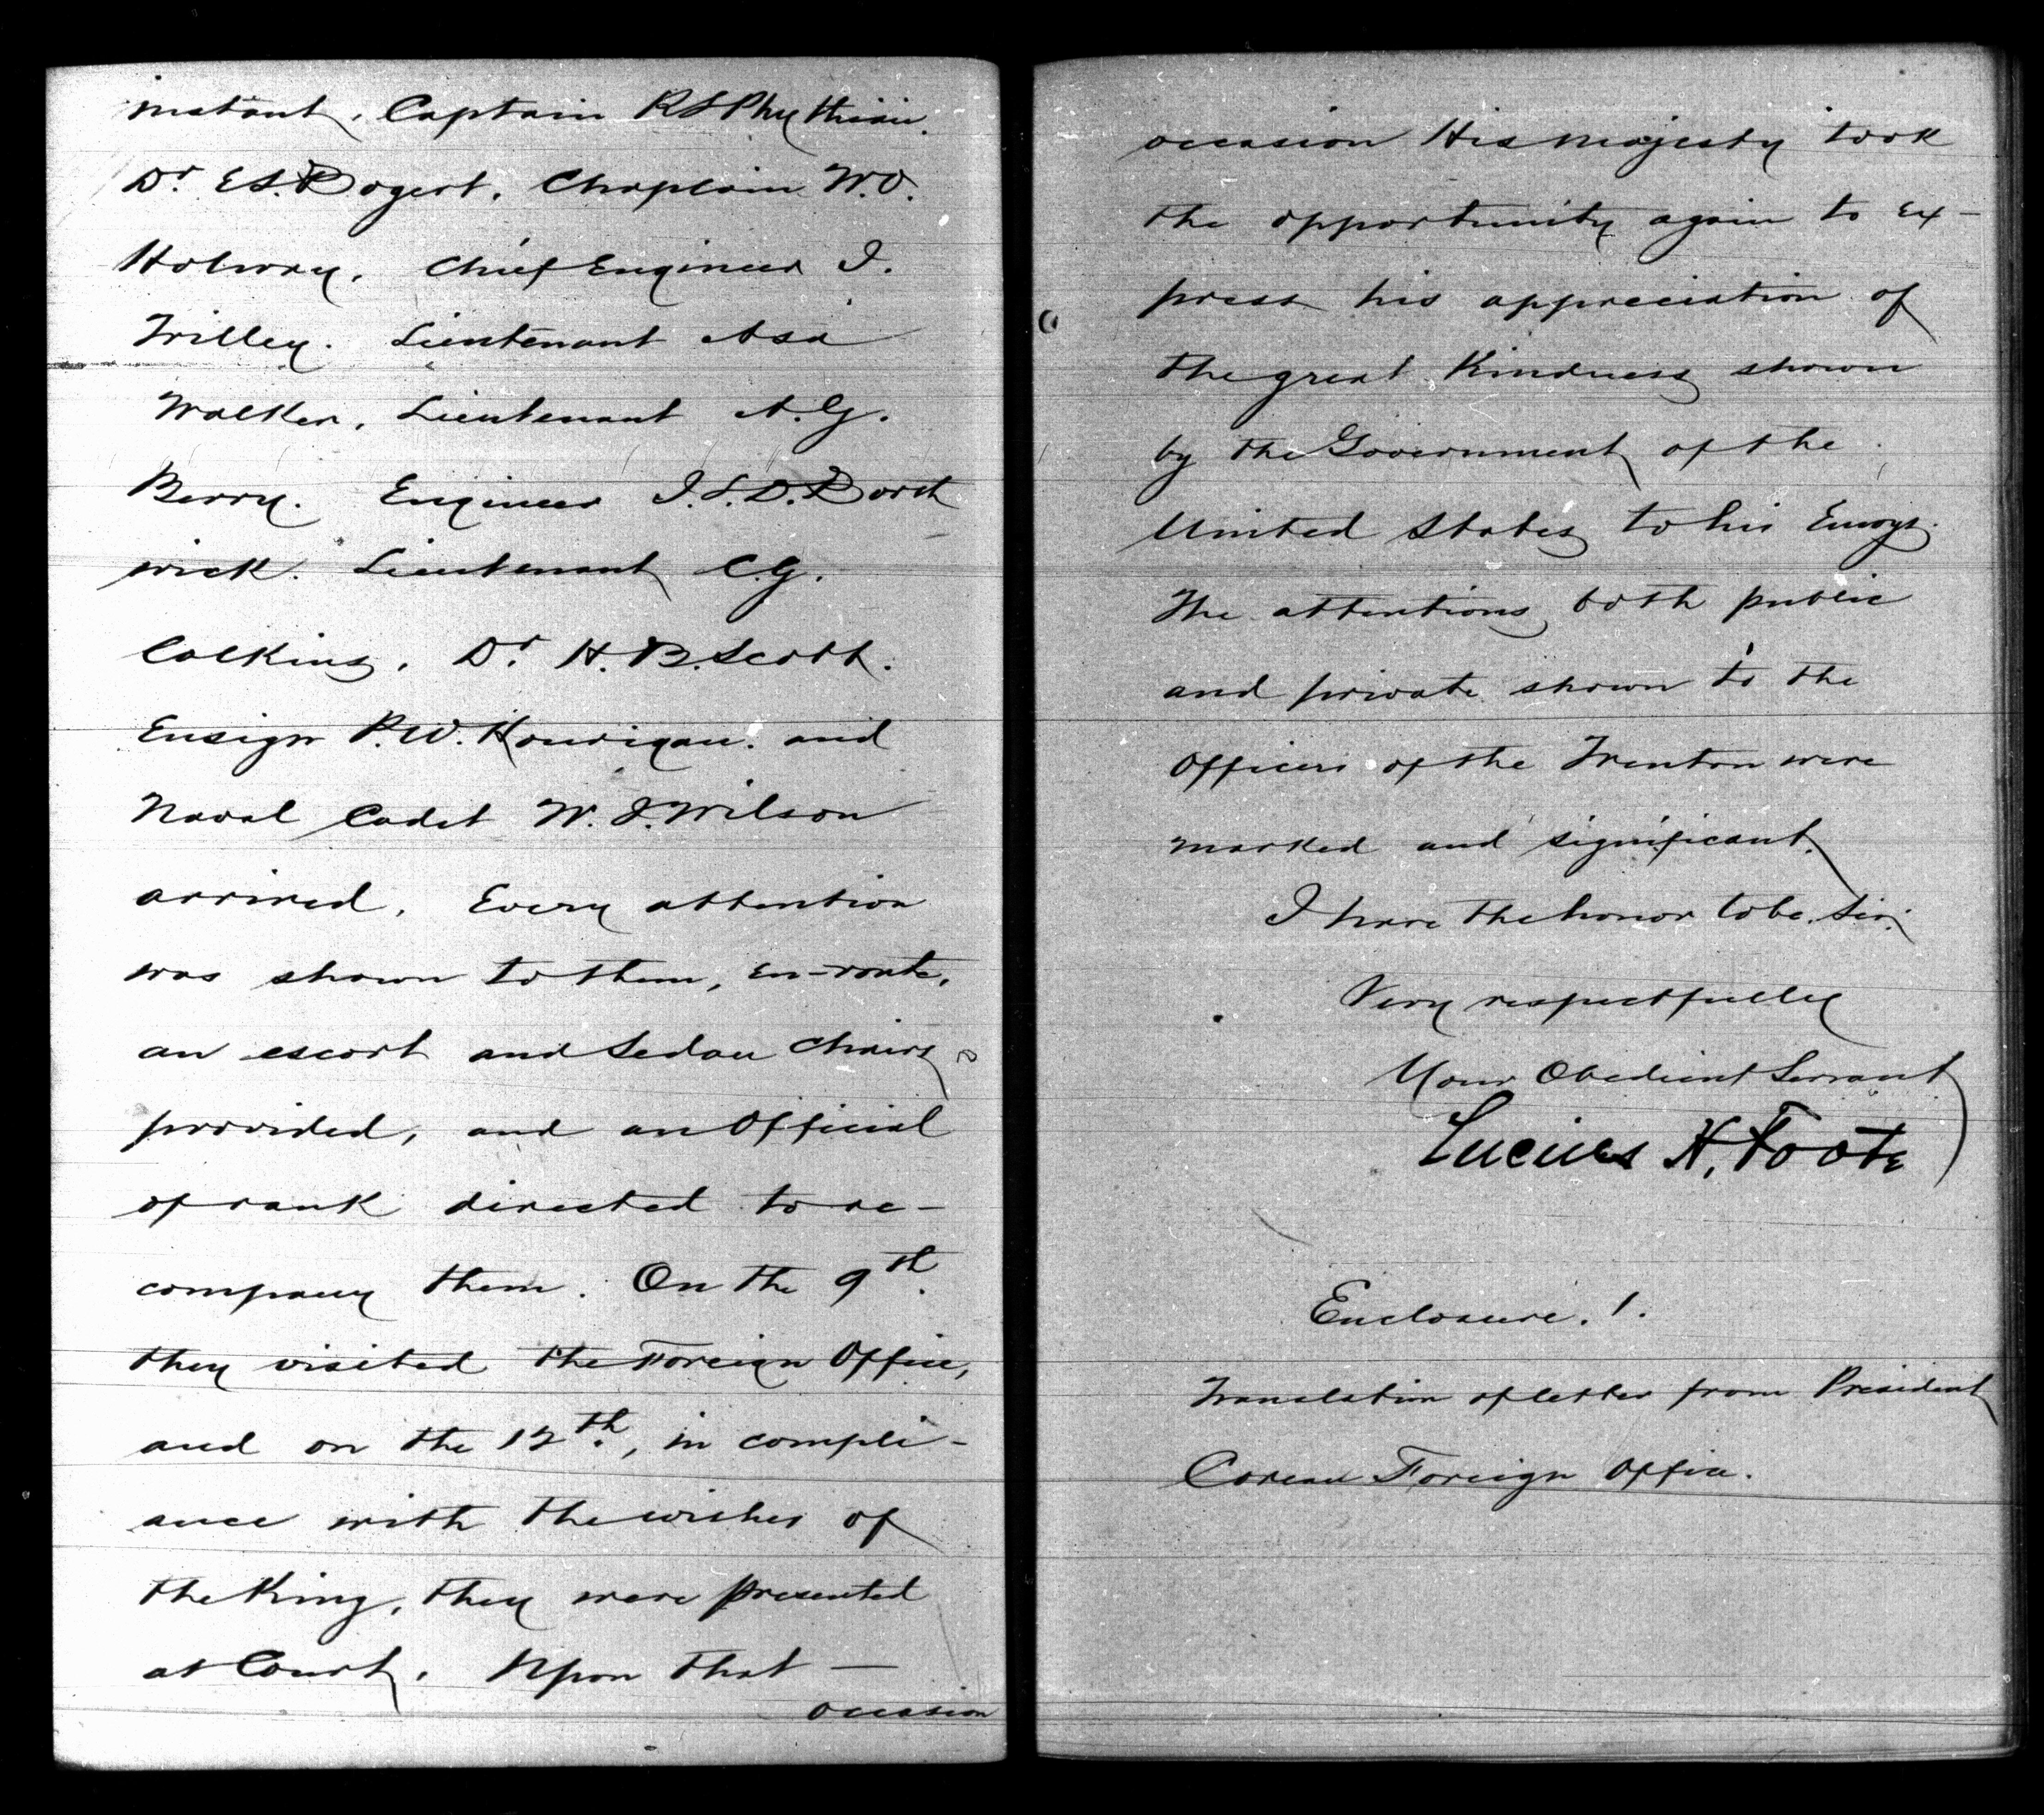 instant, Captain R L Phythian.
Dr. E S. Bogert, Chaplain W. O.
Holway, Chief Engineer J.
Trilley. Lieutenant Asa
Walker, Lieutenant A. G.
Berry. Engineer J. L. D. Borth
wick. Lieutenant C. G.
Calkins, Dr. H. B. Scott.
Ensign P. W. Hourigan. and
Naval Cadet W. J. Wilson
arrived. Every attention
was shown to them, en-route,
an escort and Sedan Chairs
provided, and an Official
of rank directed to ac-
company them. On the 9th.
they visited the Foreign Office,
and on the 12th., in compli-
ance with the wishes of
the King, they were presented
at Court. Upon that —
occasion
occasion His Majesty took
the opportunity again to ex-
press his appreciation of
the great Kindness shown
by the Government of the
United States to his Envoys.
The attentions both public
and private shown to the
Officers of the Trenton were
marked and significant.
I have the honor to be. Sir:
Very respectfully
Your Obedient Servant
Lucius H. Foote
Enclosure. 1.
Translation of letter from President
Corean Foreign Office.